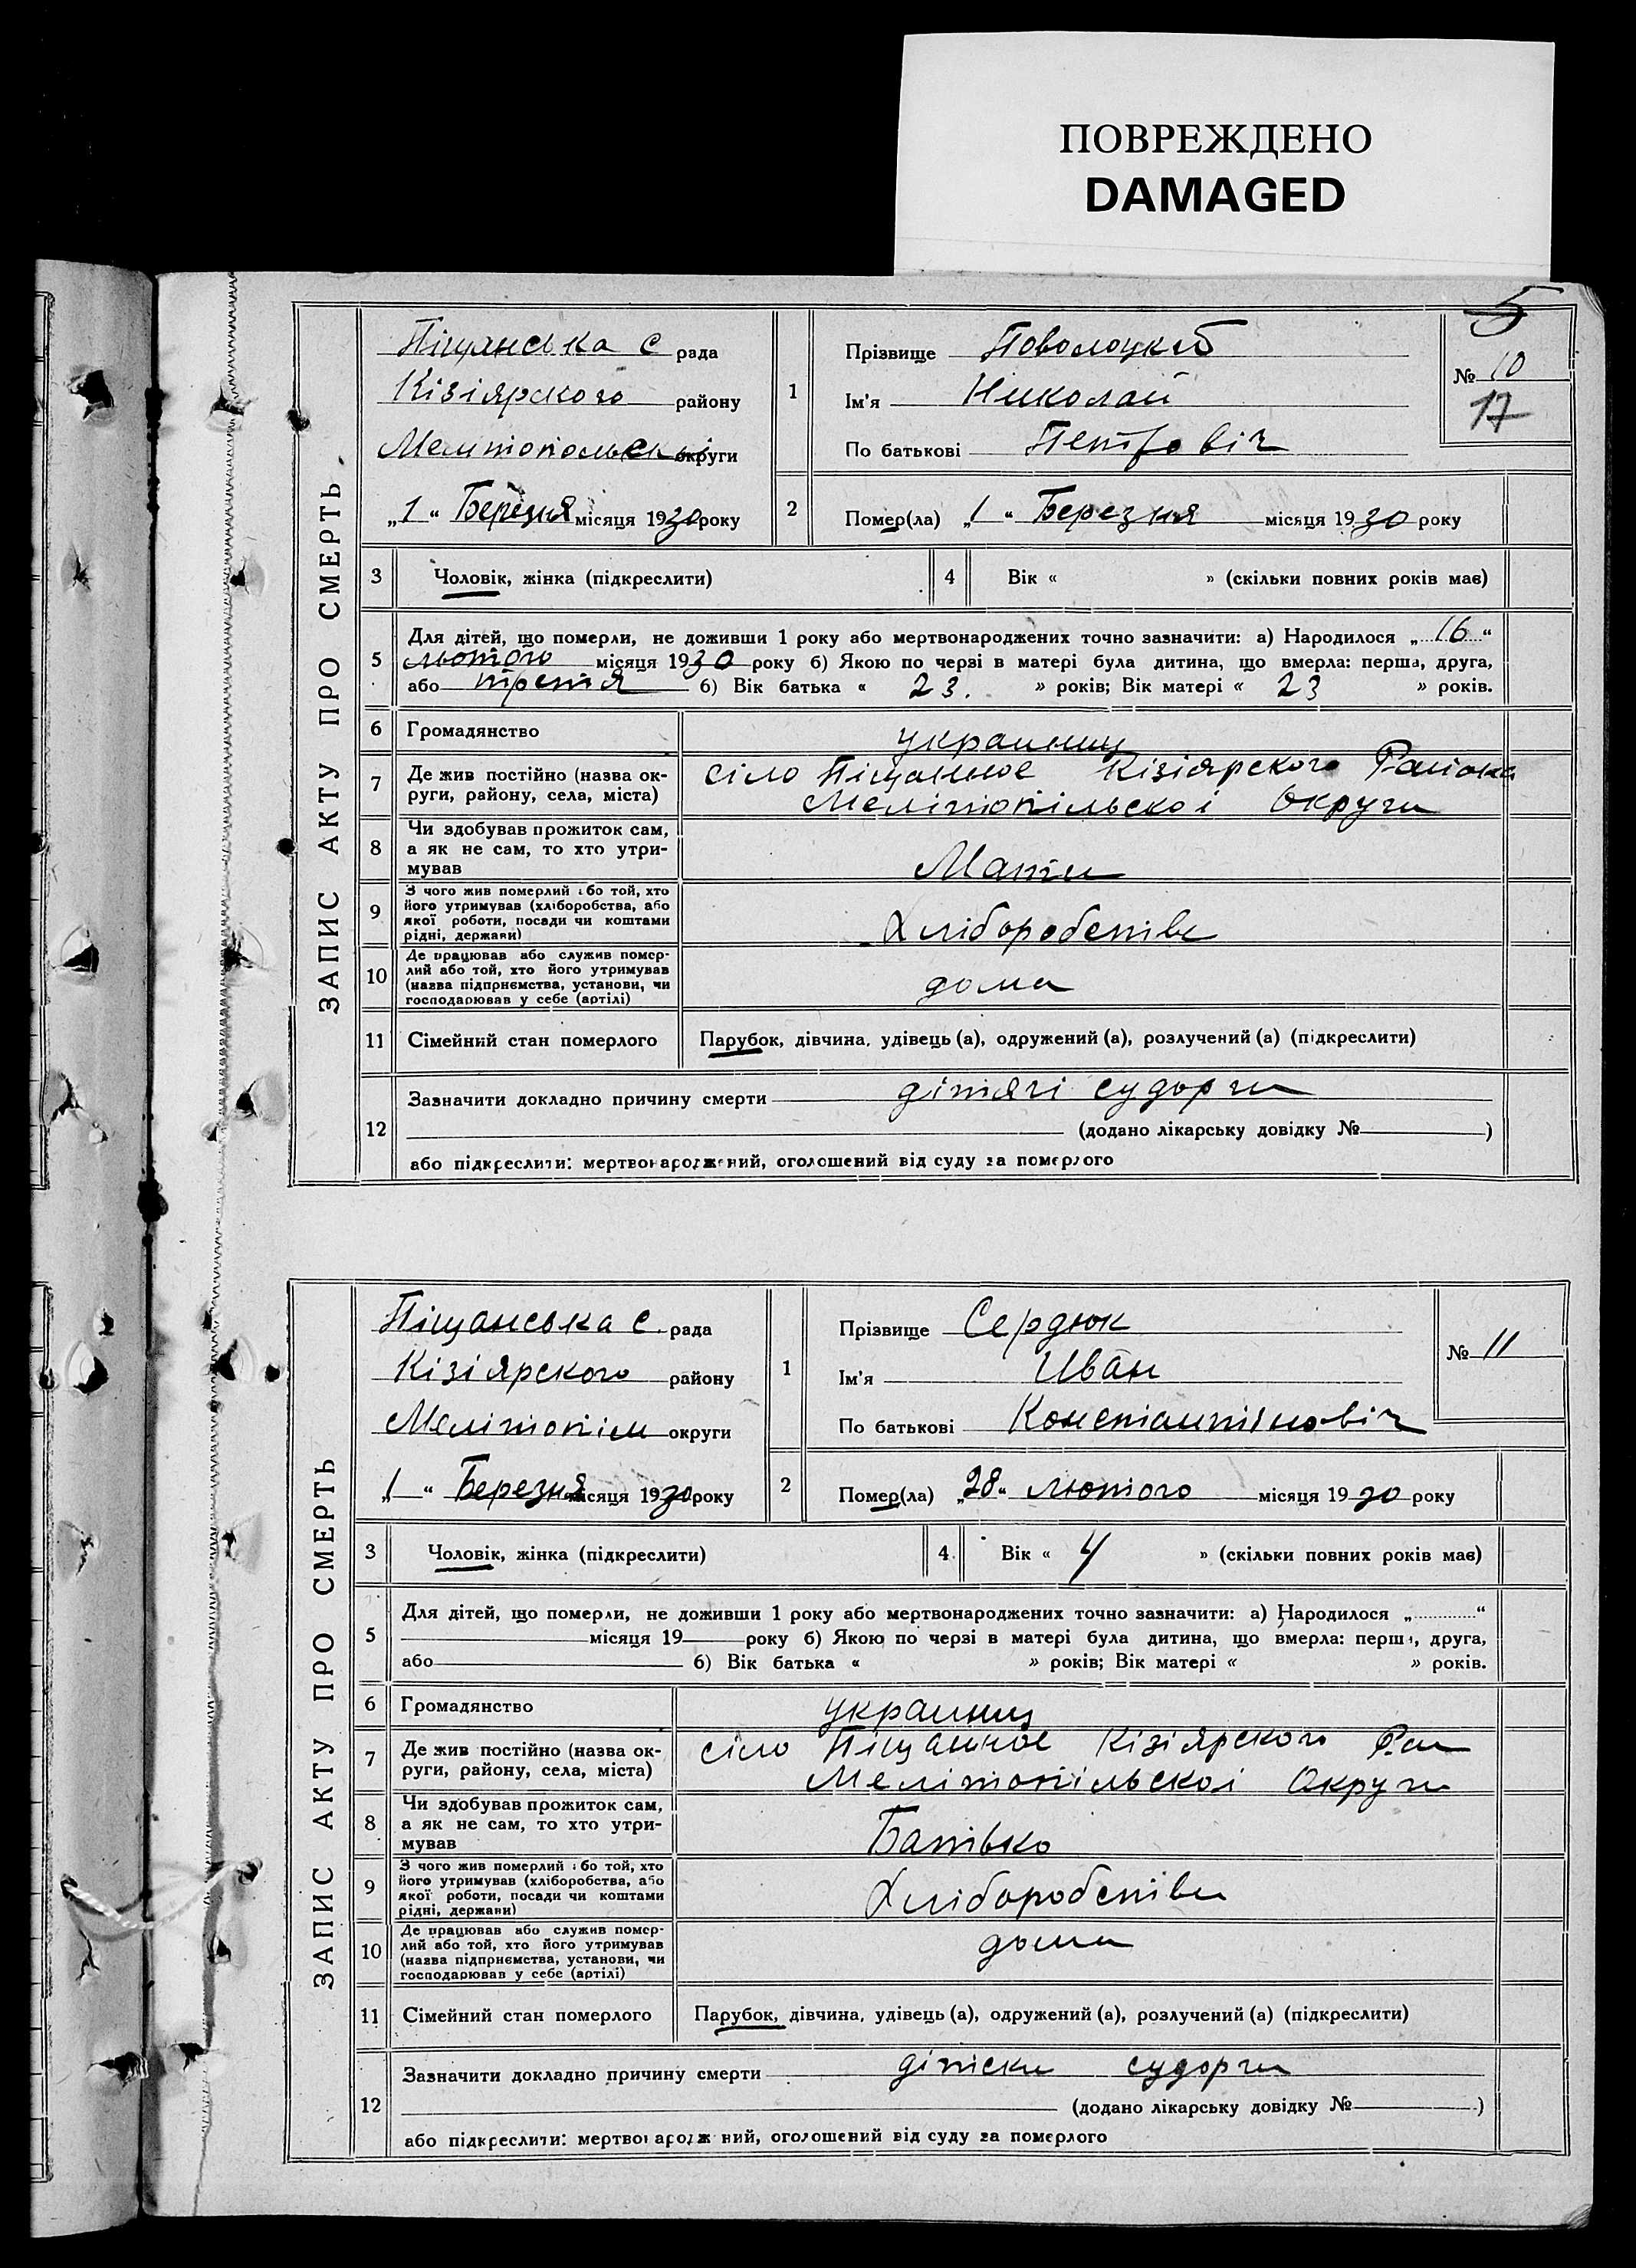 ПОВРЕЖДЕНО
DAMAGED
5
ЗАПИС АКТУ ПРО СМЕРТЬ
Піщанська с рада
Кізіярского району
округи
„1“ Березня місяця 1930 року
1
Прізвище
Ім'я Николай
По батькові Петровіч
№ 10
17
2 Помер(ла) „1“ Березня місяця 1930 року
3 Чоловік, жінка (підкреслити) 4 Вік « » (скільки повних років має)
5 Для дітей, що померли, не доживши 1 року або мертвонароджених точно зазначити: а) Народилося „16“
лютого місяця 1930 року б) Якою по черзі в матері була дитина, що вмерла: перша, друга,
або третя б) Вік батька « 23. » років; Вік матері « 23 » років.
6 Громадянство украинец
7 Де жив постійно (назва ок-
руги, району, села, міста)
сіло Піщанное Кізіярского Раиона
Мелітопільскоі Округи
8 Чи здобував прожиток сам,
а як не сам, то хто утри-
мував
Мати
9 З чого жив померлий або той, хто
його утримував (хліборобства, або
якої роботи, посади чи коштами
рідні, держави)
Хліборобстве
10 Де працював або служив помер-
лий або той, хто його утримував
(назва підприємства, установи, чи
господарював у себе (артілі)
дома
11 Сімейний стан померлого Парубок, дівчина, удівець (а), одружений (а), розлучений (а) (підкреслити)
12 Зазначити докладно причину смерти дітячі судорги
(додано лікарську довідку № )
або підкреслити: мертвонароджений, оголошений від суду за померлого
ЗАПИС АКТУ ПРО СМЕРТЬ
Піщанська с. рада
Кізіярского району
Мелітопіл округи
„1“ Березня місяця 1930 року
1
Прізвище Сердюк
Ім'я Иван
По батькові Констянтіновіч
№ 11
2 Помер(ла) „28“ лютого місяця 1930 року
3 Чоловік, жінка (підкреслити) 4 Вік « 4 » (скільки повних років має)
5 Для дітей, що померли, не доживши 1 року або мертвонароджених точно зазначити: а) Народилося „ “
місяця 19 року б) Якою по черзі в матері була дитина, що вмерла: перша, друга,
або б) Вік батька « » років; Вік матері « » років.
6 Громадянство украинец
7 Де жив постійно (назва ок-
руги, району, села, міста)
сіло Піщанное Кізіярского Раи
Мелітопільскоі Округи
8 Чи здобував прожиток сам,
а як не сам, то хто утри-
мував
Батько
9 З чого жив померлий або той, хто
його утримував (хліборобства, або
якої роботи, посади чи коштами
рідні, держави)
Хліборобстве
10 Де працював або служив помер-
лий або той, хто його утримував
(назва підприємства, установи, чи
господарював у себе (артілі)
дома
11 Сімейний стан померлого Парубок, дівчина, удівець (а), одружений (а), розлучений (а) (підкреслити)
12 Зазначити докладно причину смерти дітски судорги
(додано лікарську довідку № )
або підкреслити: мертвонароджений, оголошений від суду за померлого